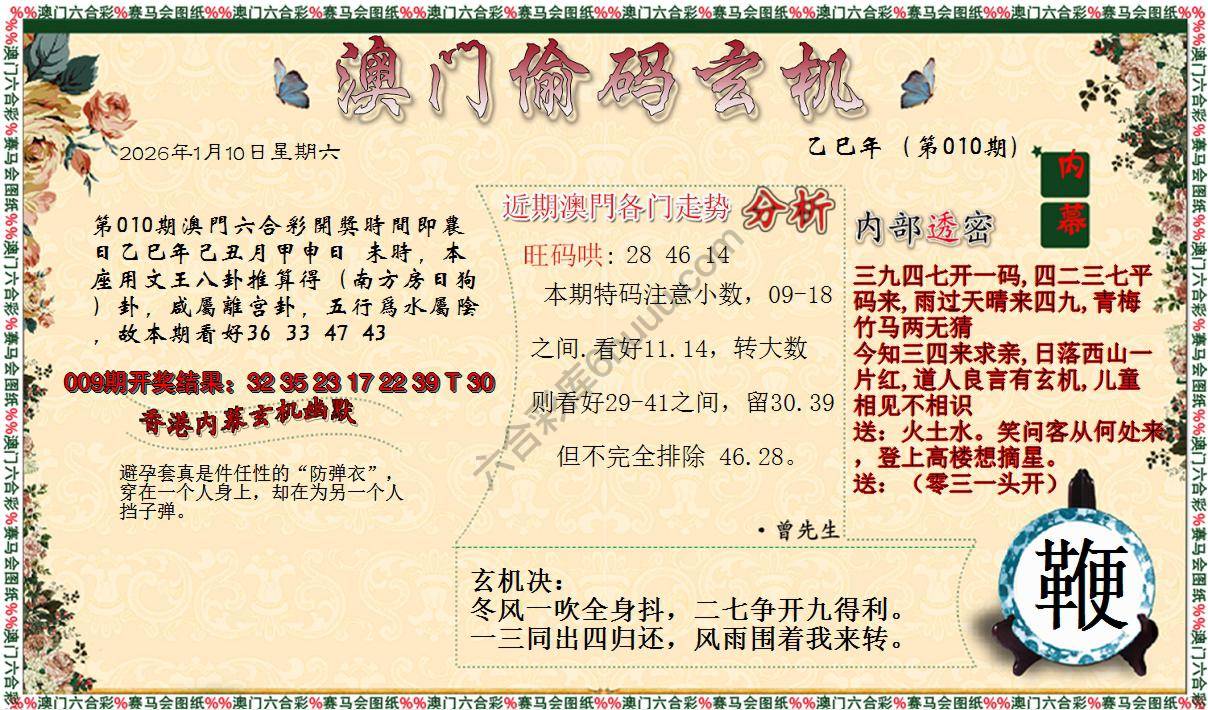 %%澳门六合彩%赛马会图纸%%澳门六合彩%赛马会图纸%%澳门六合彩%赛马会图纸%%澳门六合彩%赛马会图纸%%澳门六合彩%赛马会图纸%%澳门六合彩%赛马会图纸%%
澳门偷码玄机
2026年1月10日星期六
乙巳年（第010期）
内
幕
第010期澳門六合彩開獎時間即農
日乙巳年己丑月甲申日 未時，本
座用文王八卦推算得（南方房日狗
）卦，咸屬離宫卦，五行爲水屬陰
，故本期看好36 33 47 43
009期开奖结果：32 35 23 17 22 39 T 30
香港内幕玄机幽默
避孕套真是件任性的“防弹衣”，
穿在一个人身上，却在为另一个人
挡子弹。
近期澳門各门走势 分析
旺码哄: 28 46 14
本期特码注意小数，09-18
之间.看好11.14，转大数
则看好29-41之间，留30.39
但不完全排除 46.28。
·曾先生
内部透密
三九四七开一码,四二三七平
码来,雨过天晴来四九,青梅
竹马两无猜
今知三四来求亲,日落西山一
片红,道人良言有玄机,儿童
相见不相识
送：火土水。笑问客从何处来
，登上高楼想摘星。
送：（零三一头开）
玄机决：
冬风一吹全身抖，二七争开九得利。
一三同出四归还，风雨围着我来转。
鞭
%%澳门六合彩%赛马会图纸%%澳门六合彩%赛马会图纸%%澳门六合彩%赛马会图纸%%澳门六合彩%赛马会图纸%%澳门六合彩%赛马会图纸%%澳门六合彩%赛马会图纸%%